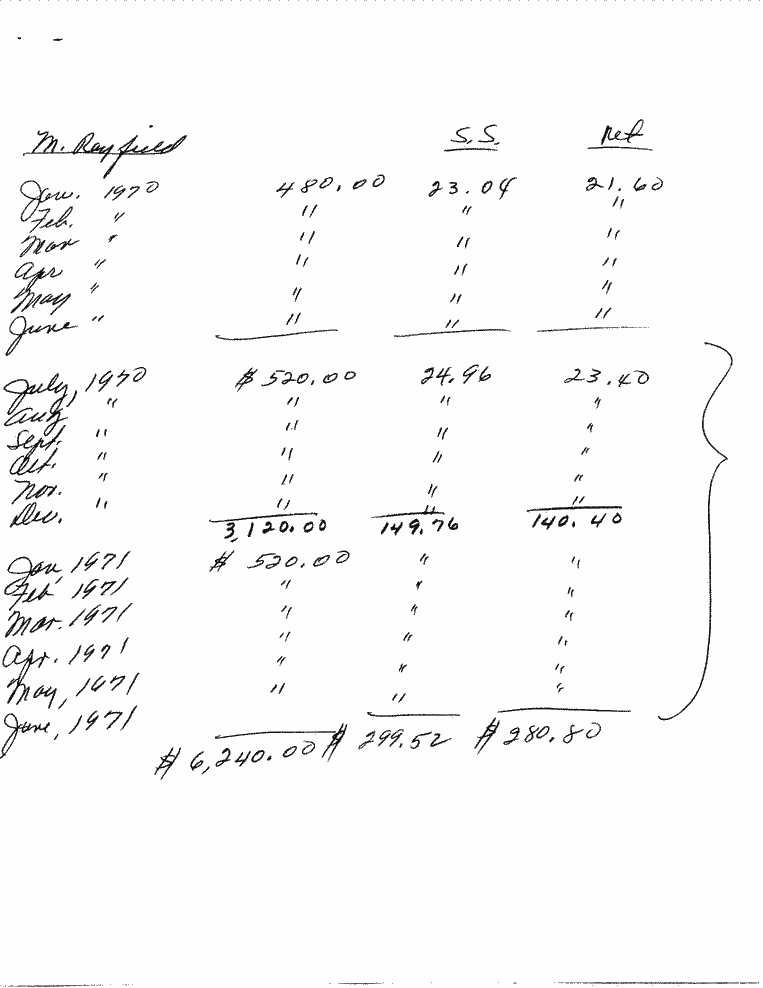 M. Rayfield S.S. Ret
Jan. 1970 480.00 23.04 21.60
Feb. " " " "
Mar " " " "
Apr " " " "
May " " " "
June " " " "
July, 1970 $ 520.00 24.96 23.40
Aug " " " "
Sept. " " " "
Oct. " " " "
Nov. " " " "
Dec. " " " "
3,120.00 149.76 140.40
Jan, 1971 $ 520.00 " "
Feb 1971 " " "
Mar. 1971 " " "
Apr. 1971 " " "
May, 1971 " " "
June, 1971 " " "
$ 6,240.00 $ 299.52 $ 280.80